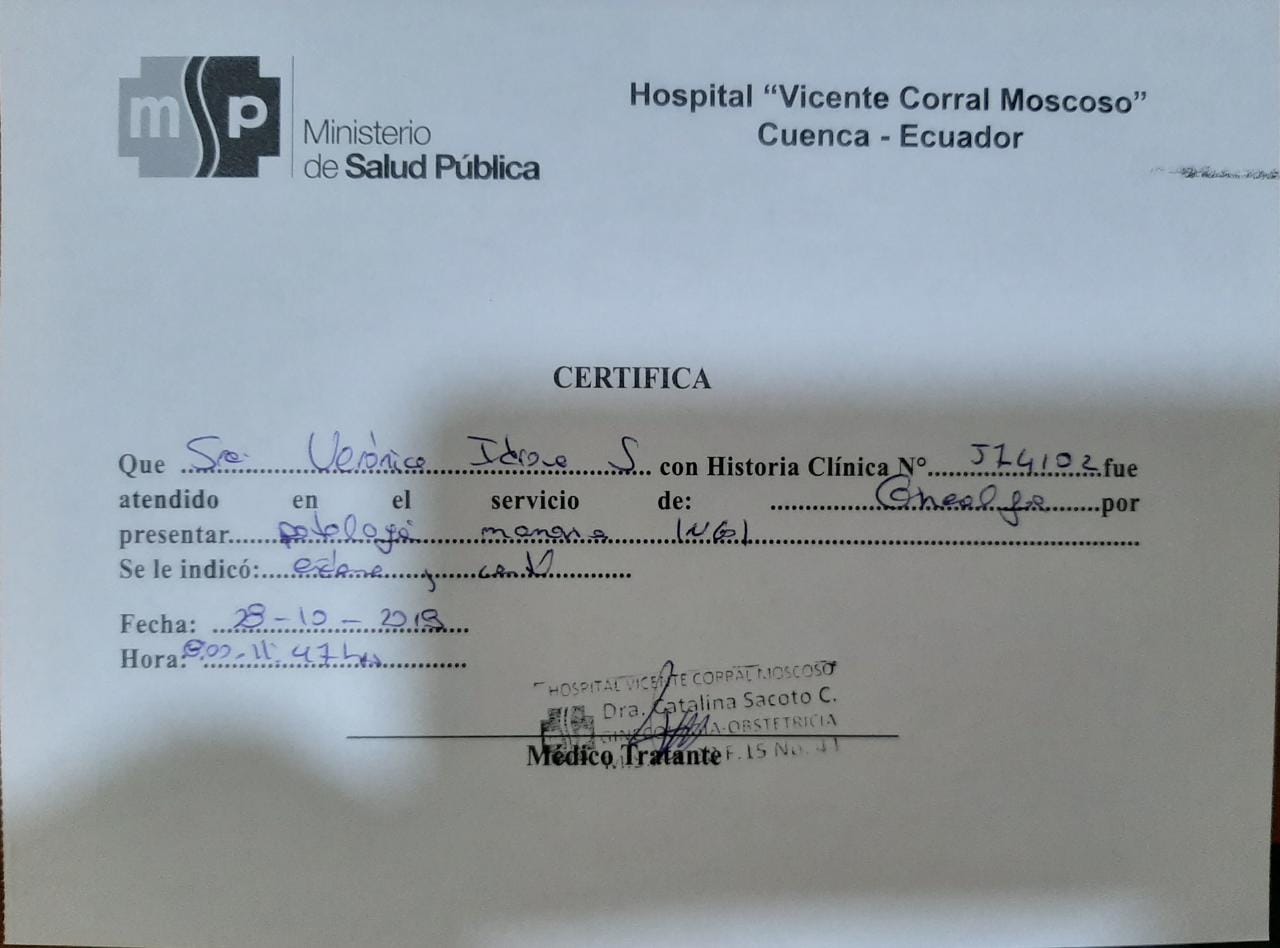 msp
Ministerio
de Salud Pública
Hospital “Vicente Corral Moscoso”
Cuenca - Ecuador
CERTIFICA
Que Sra. Verónica Idrovo S con Historia Clínica N° 574102 fue
atendido en el servicio de: Ginecología por
presentar patología mamaria
Se le indicó: exámenes y control
Fecha: 28-10-2019
Hora: 8:00-11:47 hrs
HOSPITAL VICENTE CORRAL MOSCOSO
Dra. Catalina Sacoto C.
GINECOLOGIA-OBSTETRICIA
F. 15 No. 41
Médico Tratante